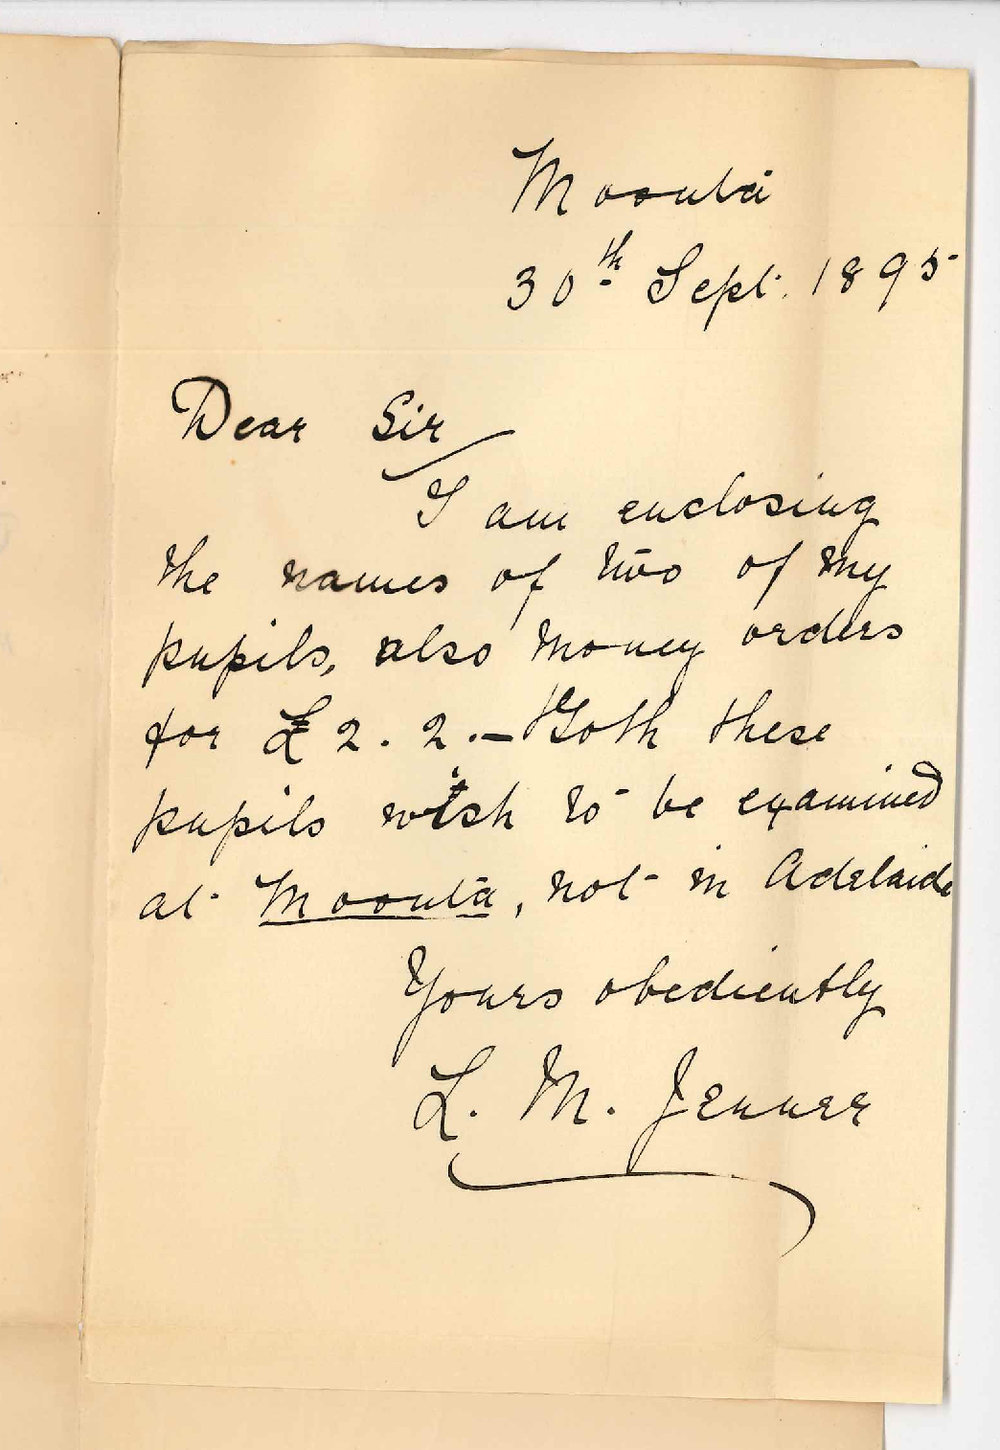 Moonta
30th Sept. 1895
Dear Sir
I am enclosing
the names of two of my
pupils, also money orders
for £2.2.— Both these
pupils wish to be examined
at Moonta, not in Adelaide
Yours obediently
L. M. Jenner